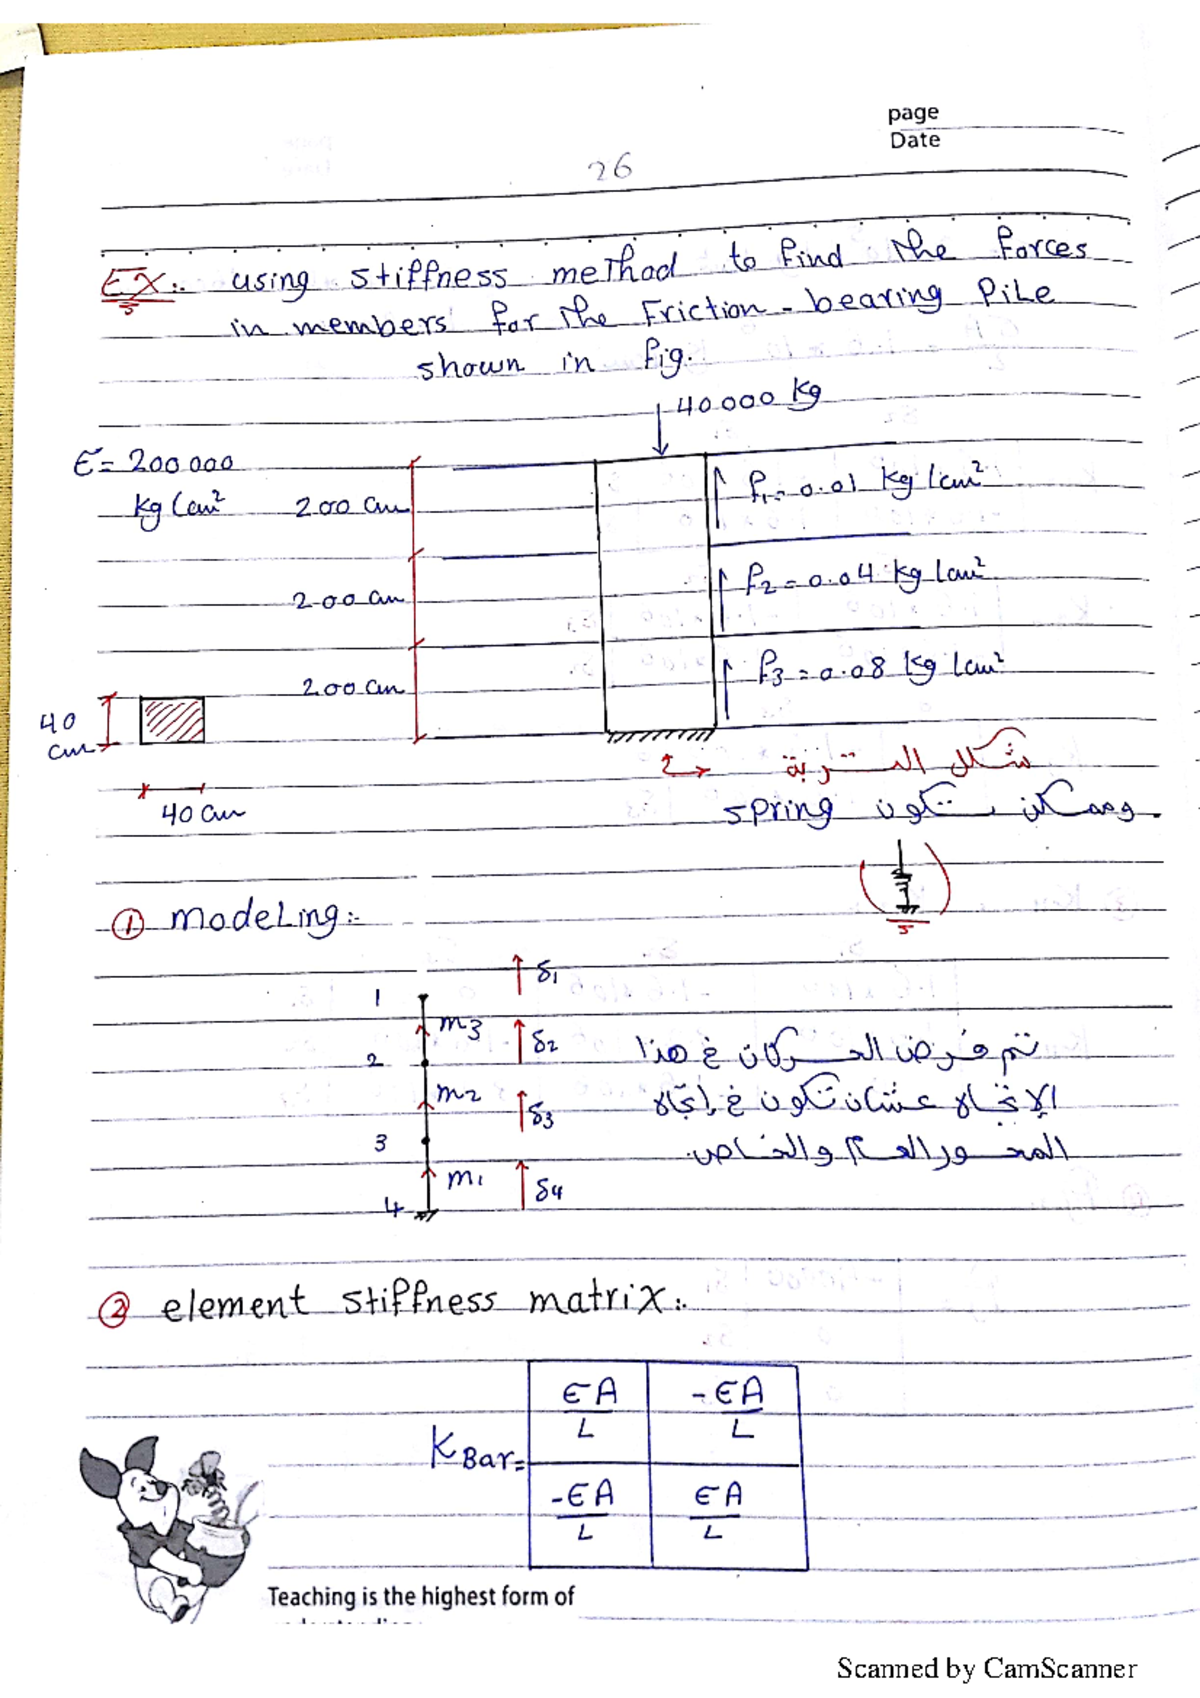 page
Date
26
EX:. using stiffness method to find the forces
in members for the Friction - bearing PiLe
shown in fig.
40000 kg
E = 200000
kg/cm²
200 cm
f₁ = 0.01 kg/cm²
200 cm
f₂ = 0.04 kg/cm²
200 cm
f₃ = 0.08 kg/cm²
40
cm
40 cm
شكل التربة
وممكن تكون spring
① modeLing:-
δ₁
1
m3
δ2
2
تم فرض الحركات في هذا
m2
δ3
الإتجاه عشان تكون في إتجاه
3
المحور العام والخاص.
m1
δ4
4
② element stiffness matrix:.
EA/L -EA/L
K Bar=
-EA/L EA/L
Teaching is the highest form of
Scanned by CamScanner